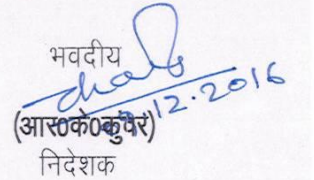 भवदीय
12.2016
(आर0के0कुचेर)
निदेशक